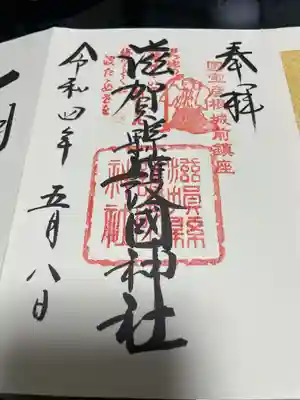 奉拝
国宝彦根城前鎮座
滋賀縣護國神社
滋賀縣護國神社
令和四年 五月八日